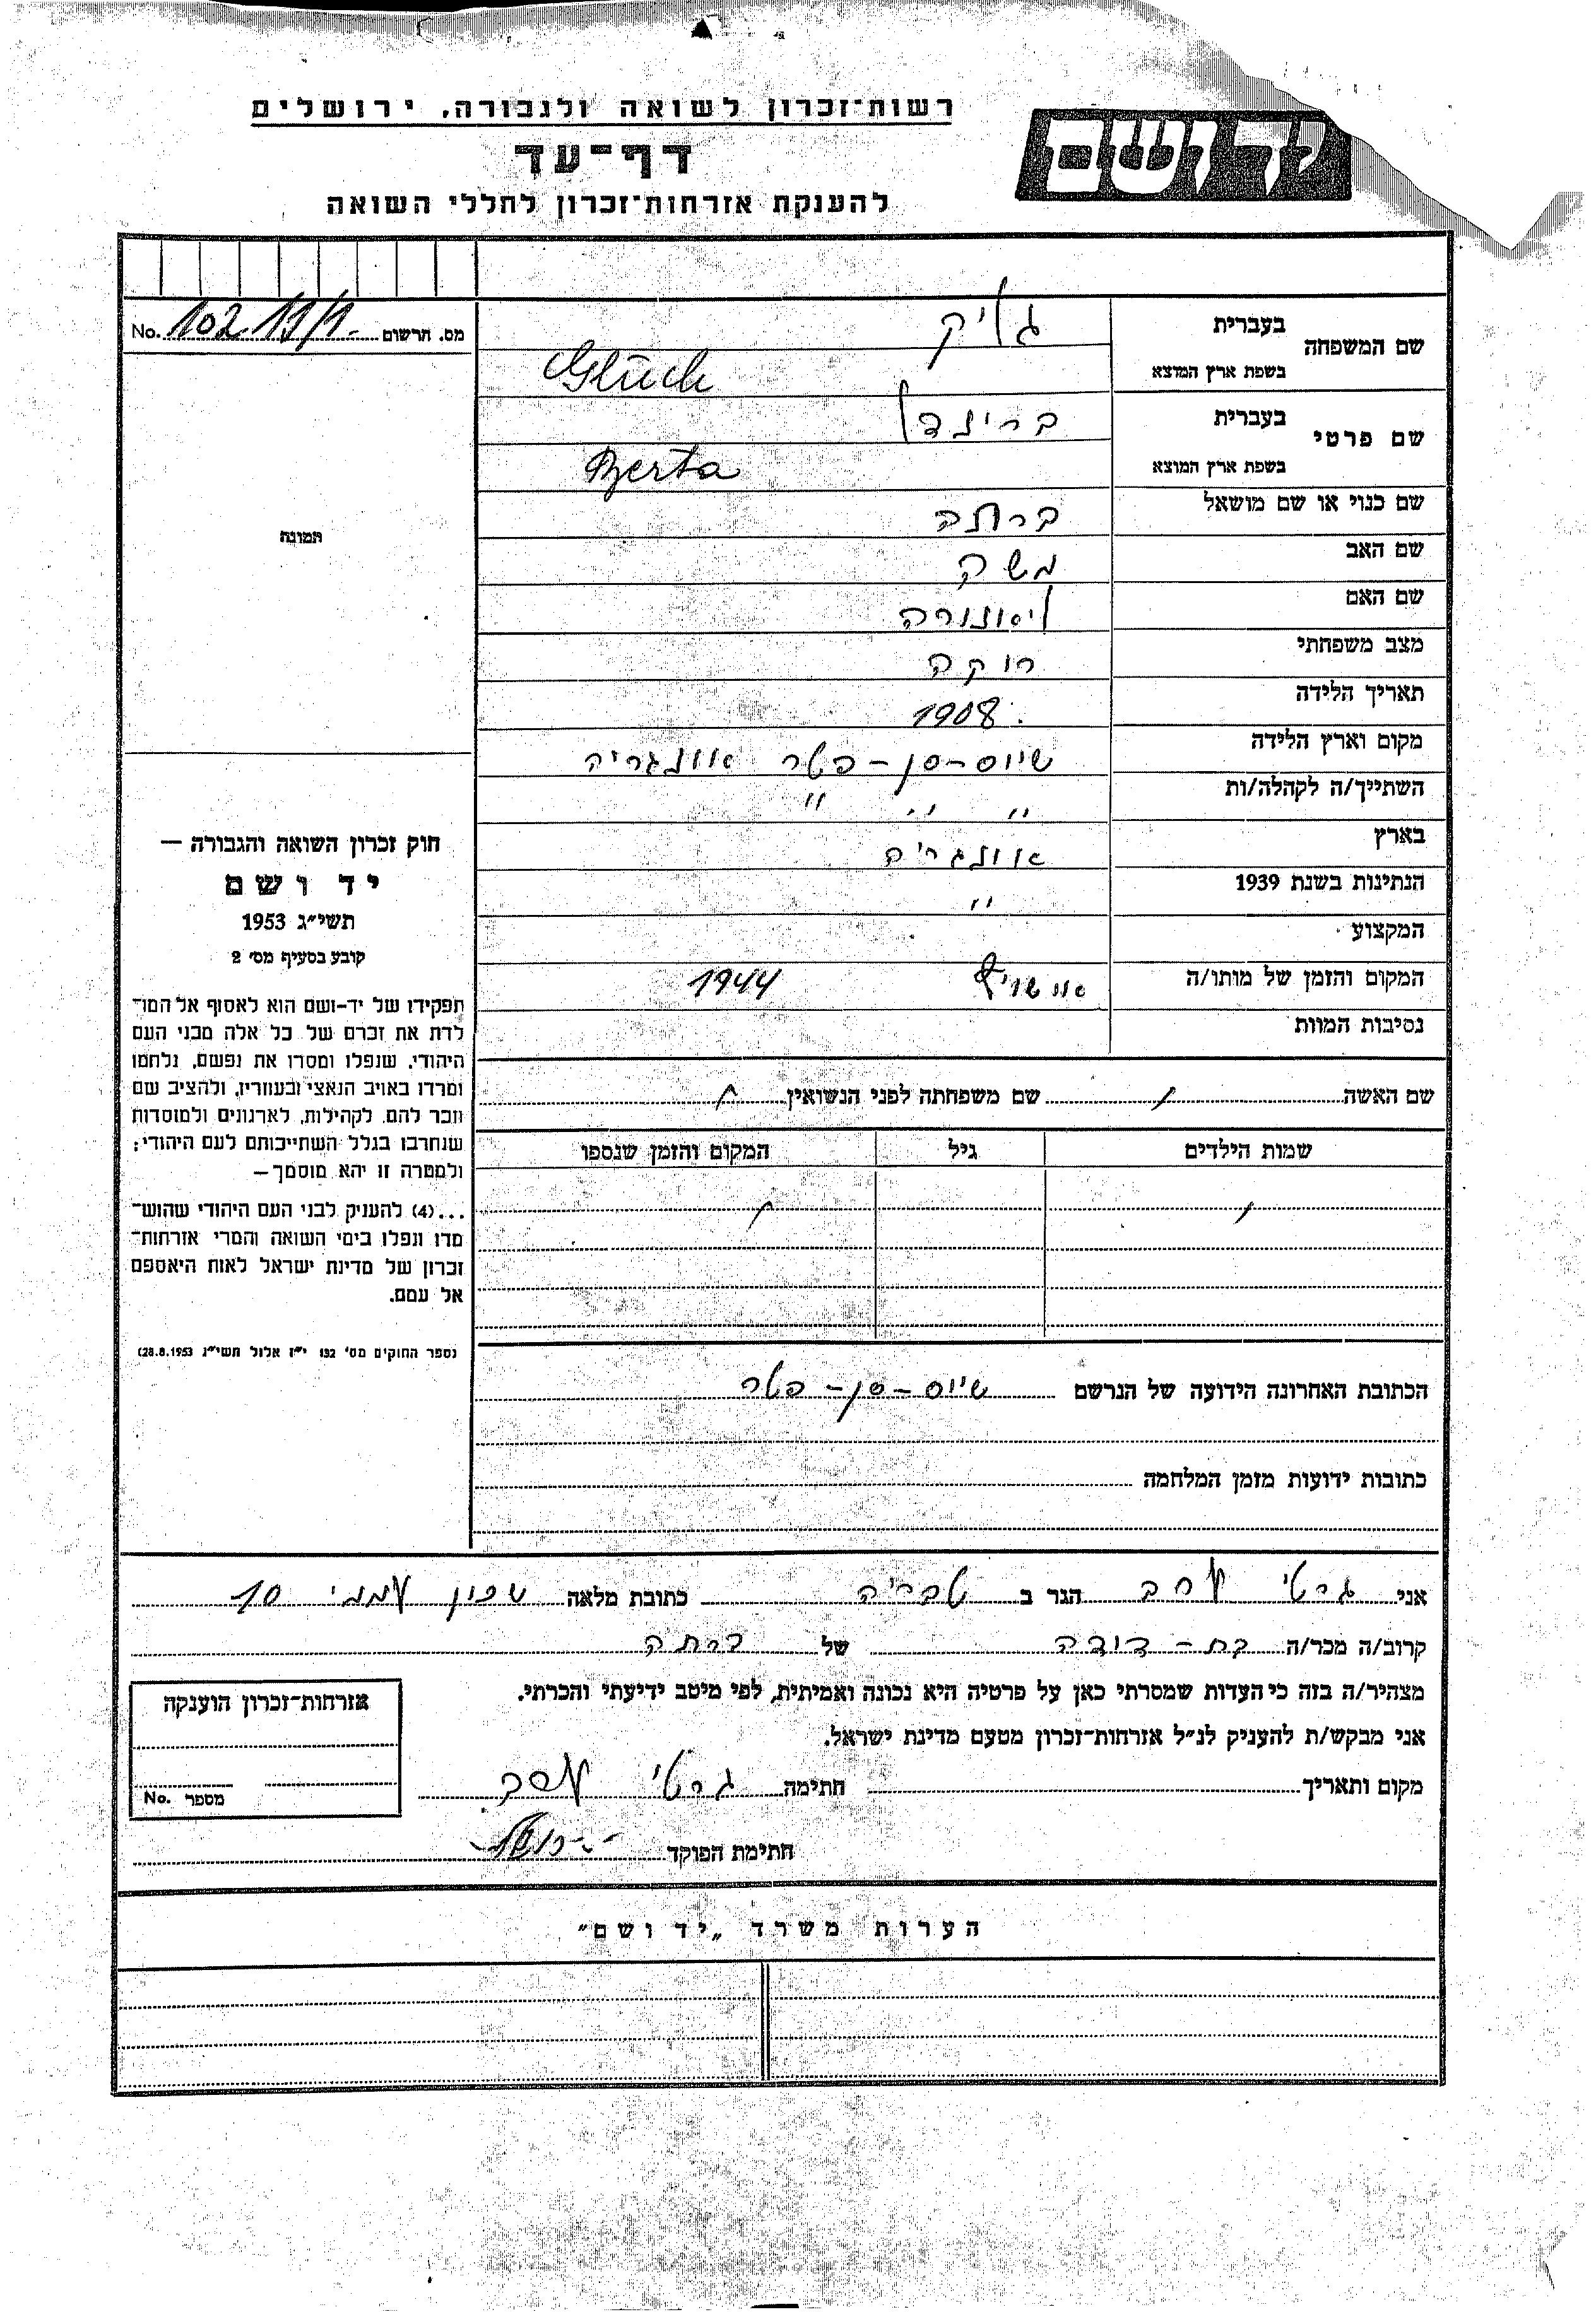 רשות־זכרון לשואה ולגבורה, ירושלים
יד ושם
דף־עד
להענקת אזרחות־זכרון לחללי השואה
מס. הרשום No. 102 19/1
שם המשפחה
בעברית גליק
בשפת ארץ המוצא Glück
שם פרטי
בעברית ברינדל
בשפת ארץ המוצא Berta
שם כנוי או שם מושאל ברתה
שם האב
שם האם ליאונורה
מצב משפחתי רוקה
תאריך הלידה 1908
מקום וארץ הלידה שיוס-סן-פטר אונגריה
השתייך/ה לקהלה/ות " " "
בארץ אונגריה
הנתינות בשנת 1939 "
המקצוע
המקום והזמן של מותו/ה אושויץ 1944
נסיבות המוות
תמונה
חוק זכרון השואה והגבורה —
יד ושם
תשי״ג 1953
קובע בסעיף מס׳ 2
תפקידו של יד-ושם הוא לאסוף אל המו־
לדת את זכרם של כל אלה מבני העם
היהודי, שנפלו ומסרו את נפשם, נלחמו
ומרדו באויב הנאצי ובעוזריו, ולהציב שם
וזכר להם, לקהילות, לארגונים ולמוסדות
שנחרבו בגלל השתייכותם לעם היהודי;
ולמטרה זו יהא מוסמך —
...(4) להעניק לבני העם היהודי שהוש־
מדו ונפלו בימי השואה והמרי אזרחות־
זכרון של מדינת ישראל לאות היאספם
אל עמם.
(ספר החוקים מס׳ 132 י״ז אלול תשי״ג 28.8.1953)
שם האשה / שם משפחתה לפני הנשואין /
שמות הילדים גיל המקום והזמן שנספו
/ /
הכתובת האחרונה הידועה של הנרשם שיוס-סן-פטר
כתובות ידועות מזמן המלחמה
אני גרטי הגר ב טבריה כתובת מלאה שכון עממי 10
קרוב/ה מכר/ה בת-דודה של ברתה
מצהיר/ה בזה כי העדות שמסרתי כאן על פרטיה היא נכונה ואמיתית, לפי מיטב ידיעתי והכרתי.
אני מבקש/ת להעניק לנ״ל אזרחות־זכרון מטעם מדינת ישראל.
מקום ותאריך חתימה גרטי
חתימת הפוקד
אזרחות־זכרון הוענקה
מספר No.
הערות משרד „יד ושם״